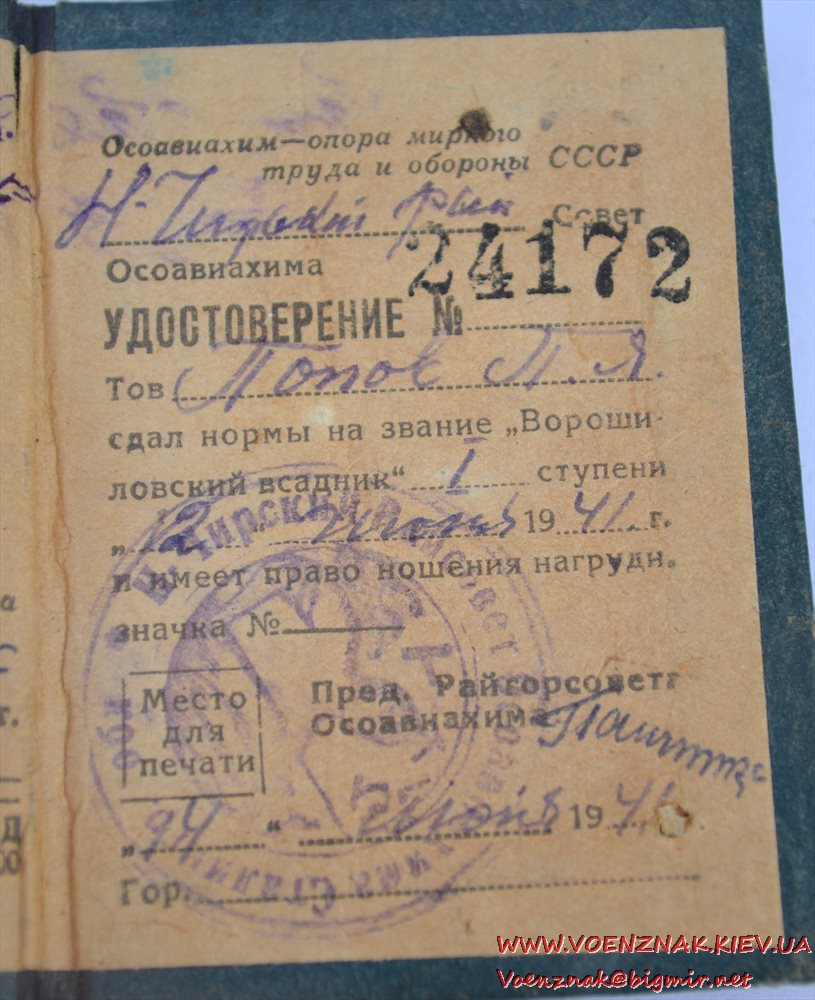 Осоавиахим—опора мирного
труда и обороны СССР
Н-Чирский рай Совет
Осоавиахима
24172
УДОСТОВЕРЕНИЕ №
Тов Попов П. Я.
сдал нормы на звание „Вороши-
ловский всадник“ I ступени
„12“ июня 1941. г.
и имеет право ношения нагрудн.
значка №
Место
для
печати
Пред. Райгорсовета
Осоавиахима
„24“ июня 1941.
Гор.
WWW.VOENZNAK.KIEV.UA
Voenznak@bigmir.net